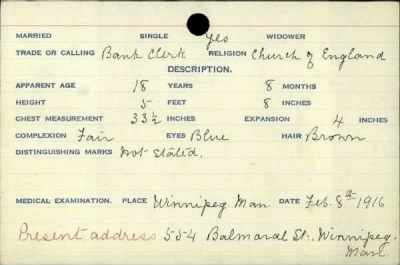 MARRIED SINGLE Yes WIDOWER
TRADE OR CALLING Bank Clerk RELIGION Church of England
DESCRIPTION.
APPARENT AGE 18 YEARS 8 MONTHS
HEIGHT 5 FEET 8 INCHES
CHEST MEASUREMENT 33½ INCHES EXPANSION 4 INCHES
COMPLEXION Fair EYES Blue HAIR Brown
DISTINGUISHING MARKS Not Stated.
MEDICAL EXAMINATION. PLACE Winnipeg Man. DATE Feb. 8th 1916
Present address 554 Balmoral St., Winnipeg,
Man.